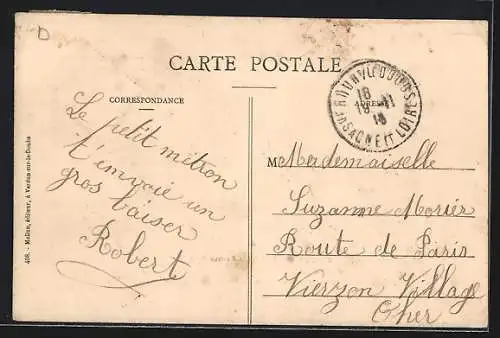 D
CARTE POSTALE
CORRESPONDANCE
ADRESSE
18
19-11
18
ET LOIRE
Le petit mitron
t'envoie un
gros baiser
Robert
Mademoiselle
Suzanne Morier
Route de Paris
Vierzon Village
Cher
408. - Mellon, éditeur, à Verdun-sur-le-Doubs